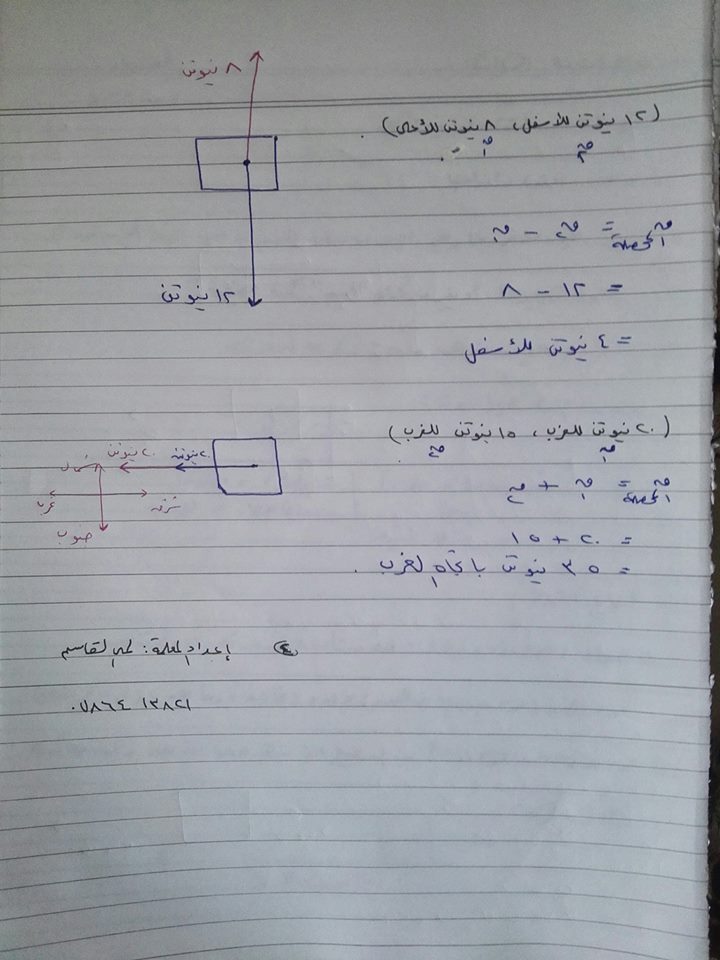 ٨ نيوتن
(١٢ نيوتن للأسفل، ٨ نيوتن للأعلى).
ق٢ ق١
ق المحصلة = ق٢ - ق١
= ١٢ - ٨
١٢ نيوتن
= ٤ نيوتن للأسفل
(٢٠ نيوتن للغرب، ١٥ نيوتن للغرب)
ق١ ق٢
٢٠ نيوتن
٢٠ نيوتن
شمال
شرق
غرب
جنوب
ق المحصلة = ق١ + ق٢
= ٢٠ + ١٥
= ٣٥ نيوتن باتجاه الغرب.
٤
إعداد المعلمة: لمى القاسم